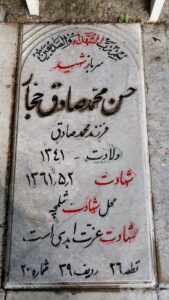 سرباز شهید
حسن محمد صادق حجار
فرزند محمد صادق
ولادت - ۱۳۴۱
شهادت ۱۳۶۱,۵,۲
محل شهادت شلمچه
شهادت عزت ابدی است
قطعه ۲۶ ردیف ۳۹ شماره ۲۰